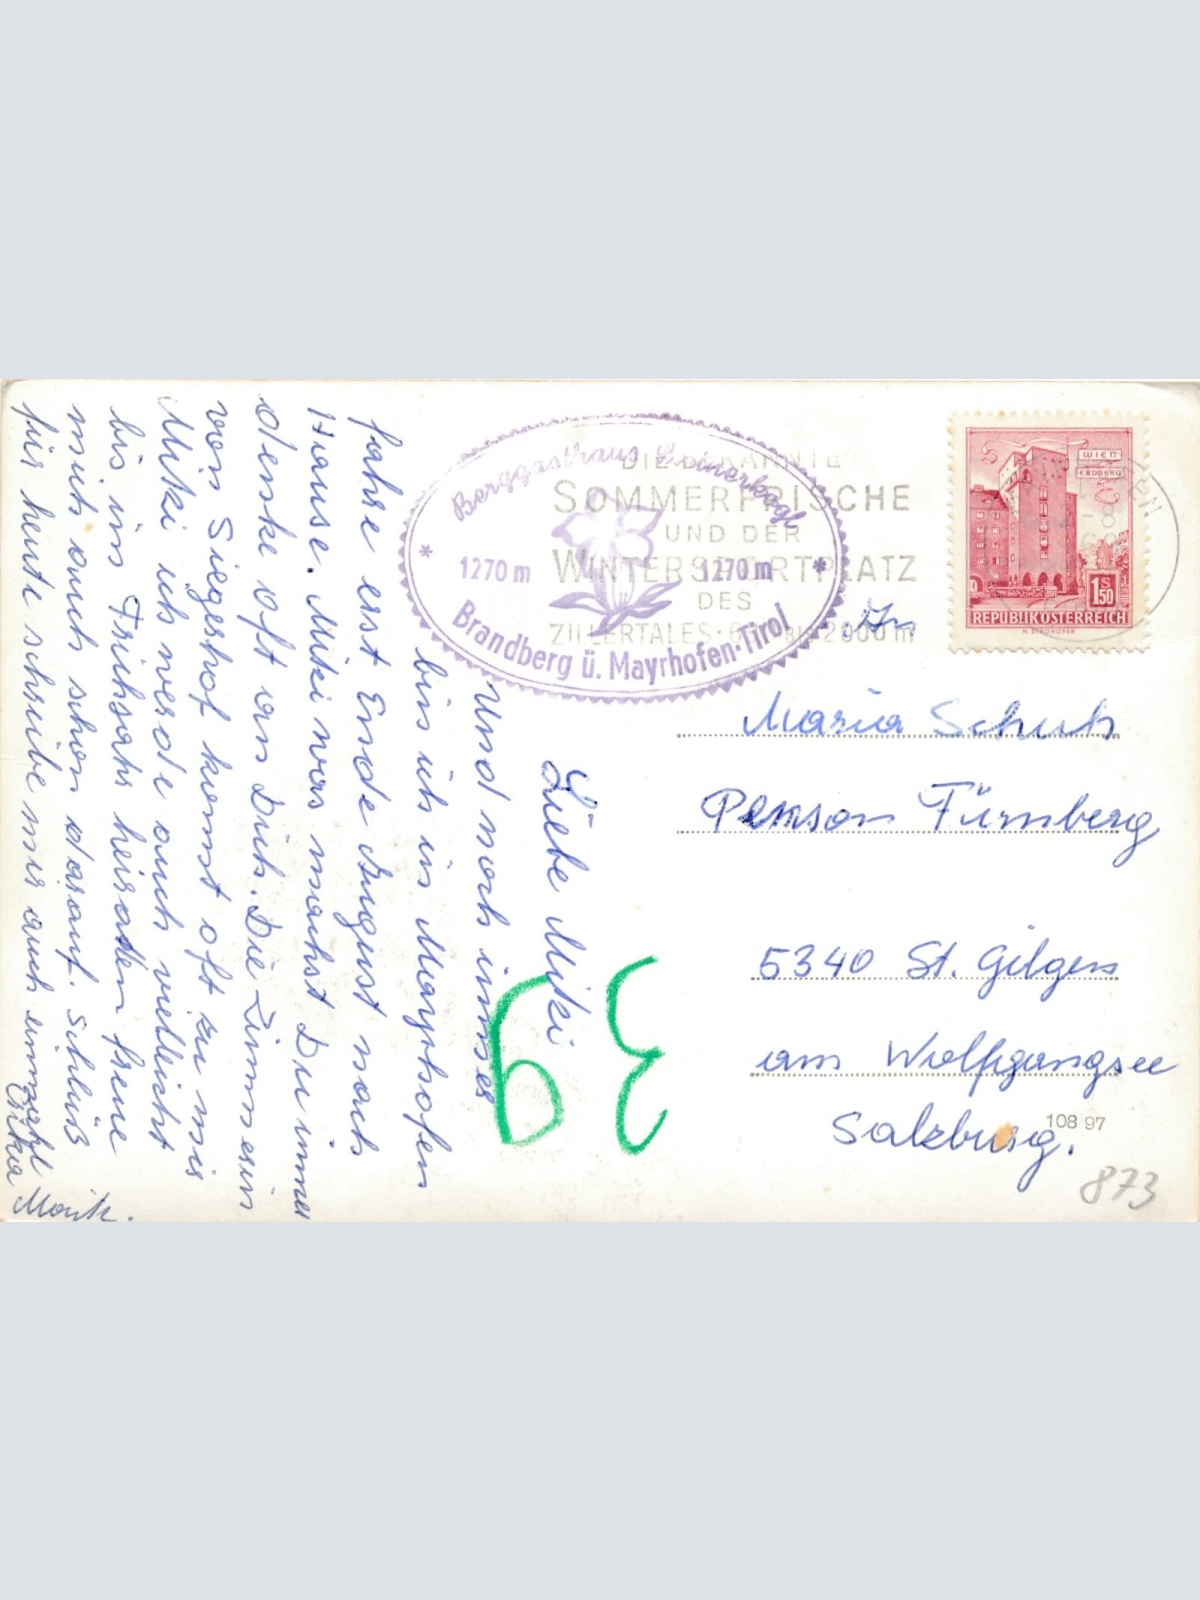 Liebe Miki
Und noch immer
bin ich in Mayrhofen
fahre erst Ende August nach
Hause. Miki was machst Du immer
denke oft an Dich. Die Zimmerin
von Siegerhof kommt oft zu mir
Miki ich werde auch vielleicht
bis im Frühjahr heiraten freue
mich auch schon darauf. Schluß
für heute schreibe mir auch einmahl
Erika
39
Berggasthaus
1270 m 1270 m
Brandberg ü. Mayrhofen-Tirol
DIE BEKANNTE
SOMMERFRISCHE
UND DER
WINTERSPORTPLATZ
DES
ZILLERTALES · 6 BIS 2000 m
WIEN
ERDBERG
1 S 50
REPUBLIK ÖSTERREICH
An
Maria Schuh
Pension Fürnberg
5340 St. Gilgen
am Wolfgangsee
Salzburg.
108 97
873